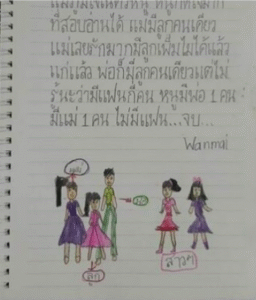 ที่สอบอ่านได้ แม่มีลูกคนเดียว
แม่เลยรักมากมีลูกเพิ่มไม่ได้แล้ว
แก่แล้ว พ่อก็มีลูกคนเดียวแต่ไม่
รู้นะว่ามีแฟนกี่คน หนูมีพ่อ 1 คน
มีแม่ 1 คน ไม่มีแฟน...จบ...
Wanmai
แม่
พ่อ
ลูก